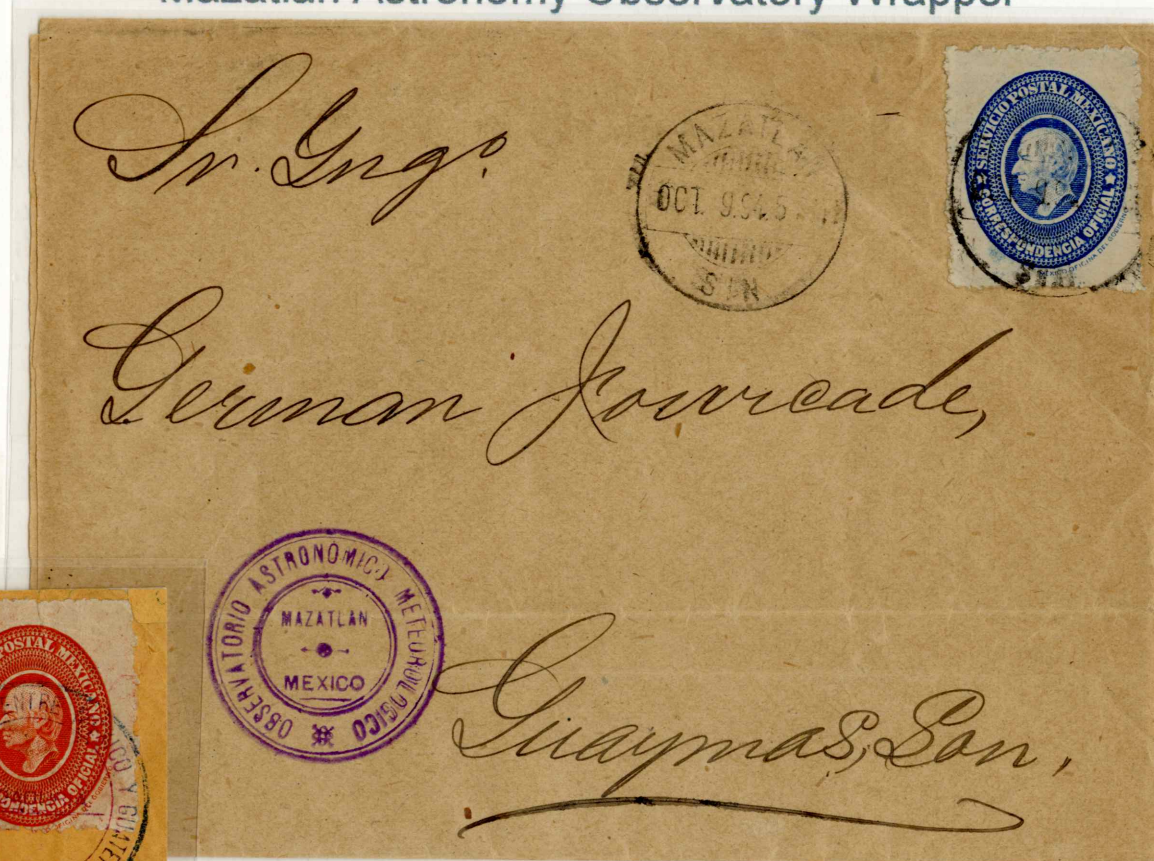 Mazatlan Astronomy Observatory Wrapper
Sr. Yngo.
MAZATLAN
OCT. 9.94.5
SIN
SERVICIO POSTAL MEXICANO
CORRESPONDENCIA OFICIAL
SIN
German Fourcade,
OBSERVATORIO ASTRONÓMICO METEOROLOGICO
MAZATLÁN
MEXICO
POSTAL MEXICANO
OFICIAL
Guaymas, Son.